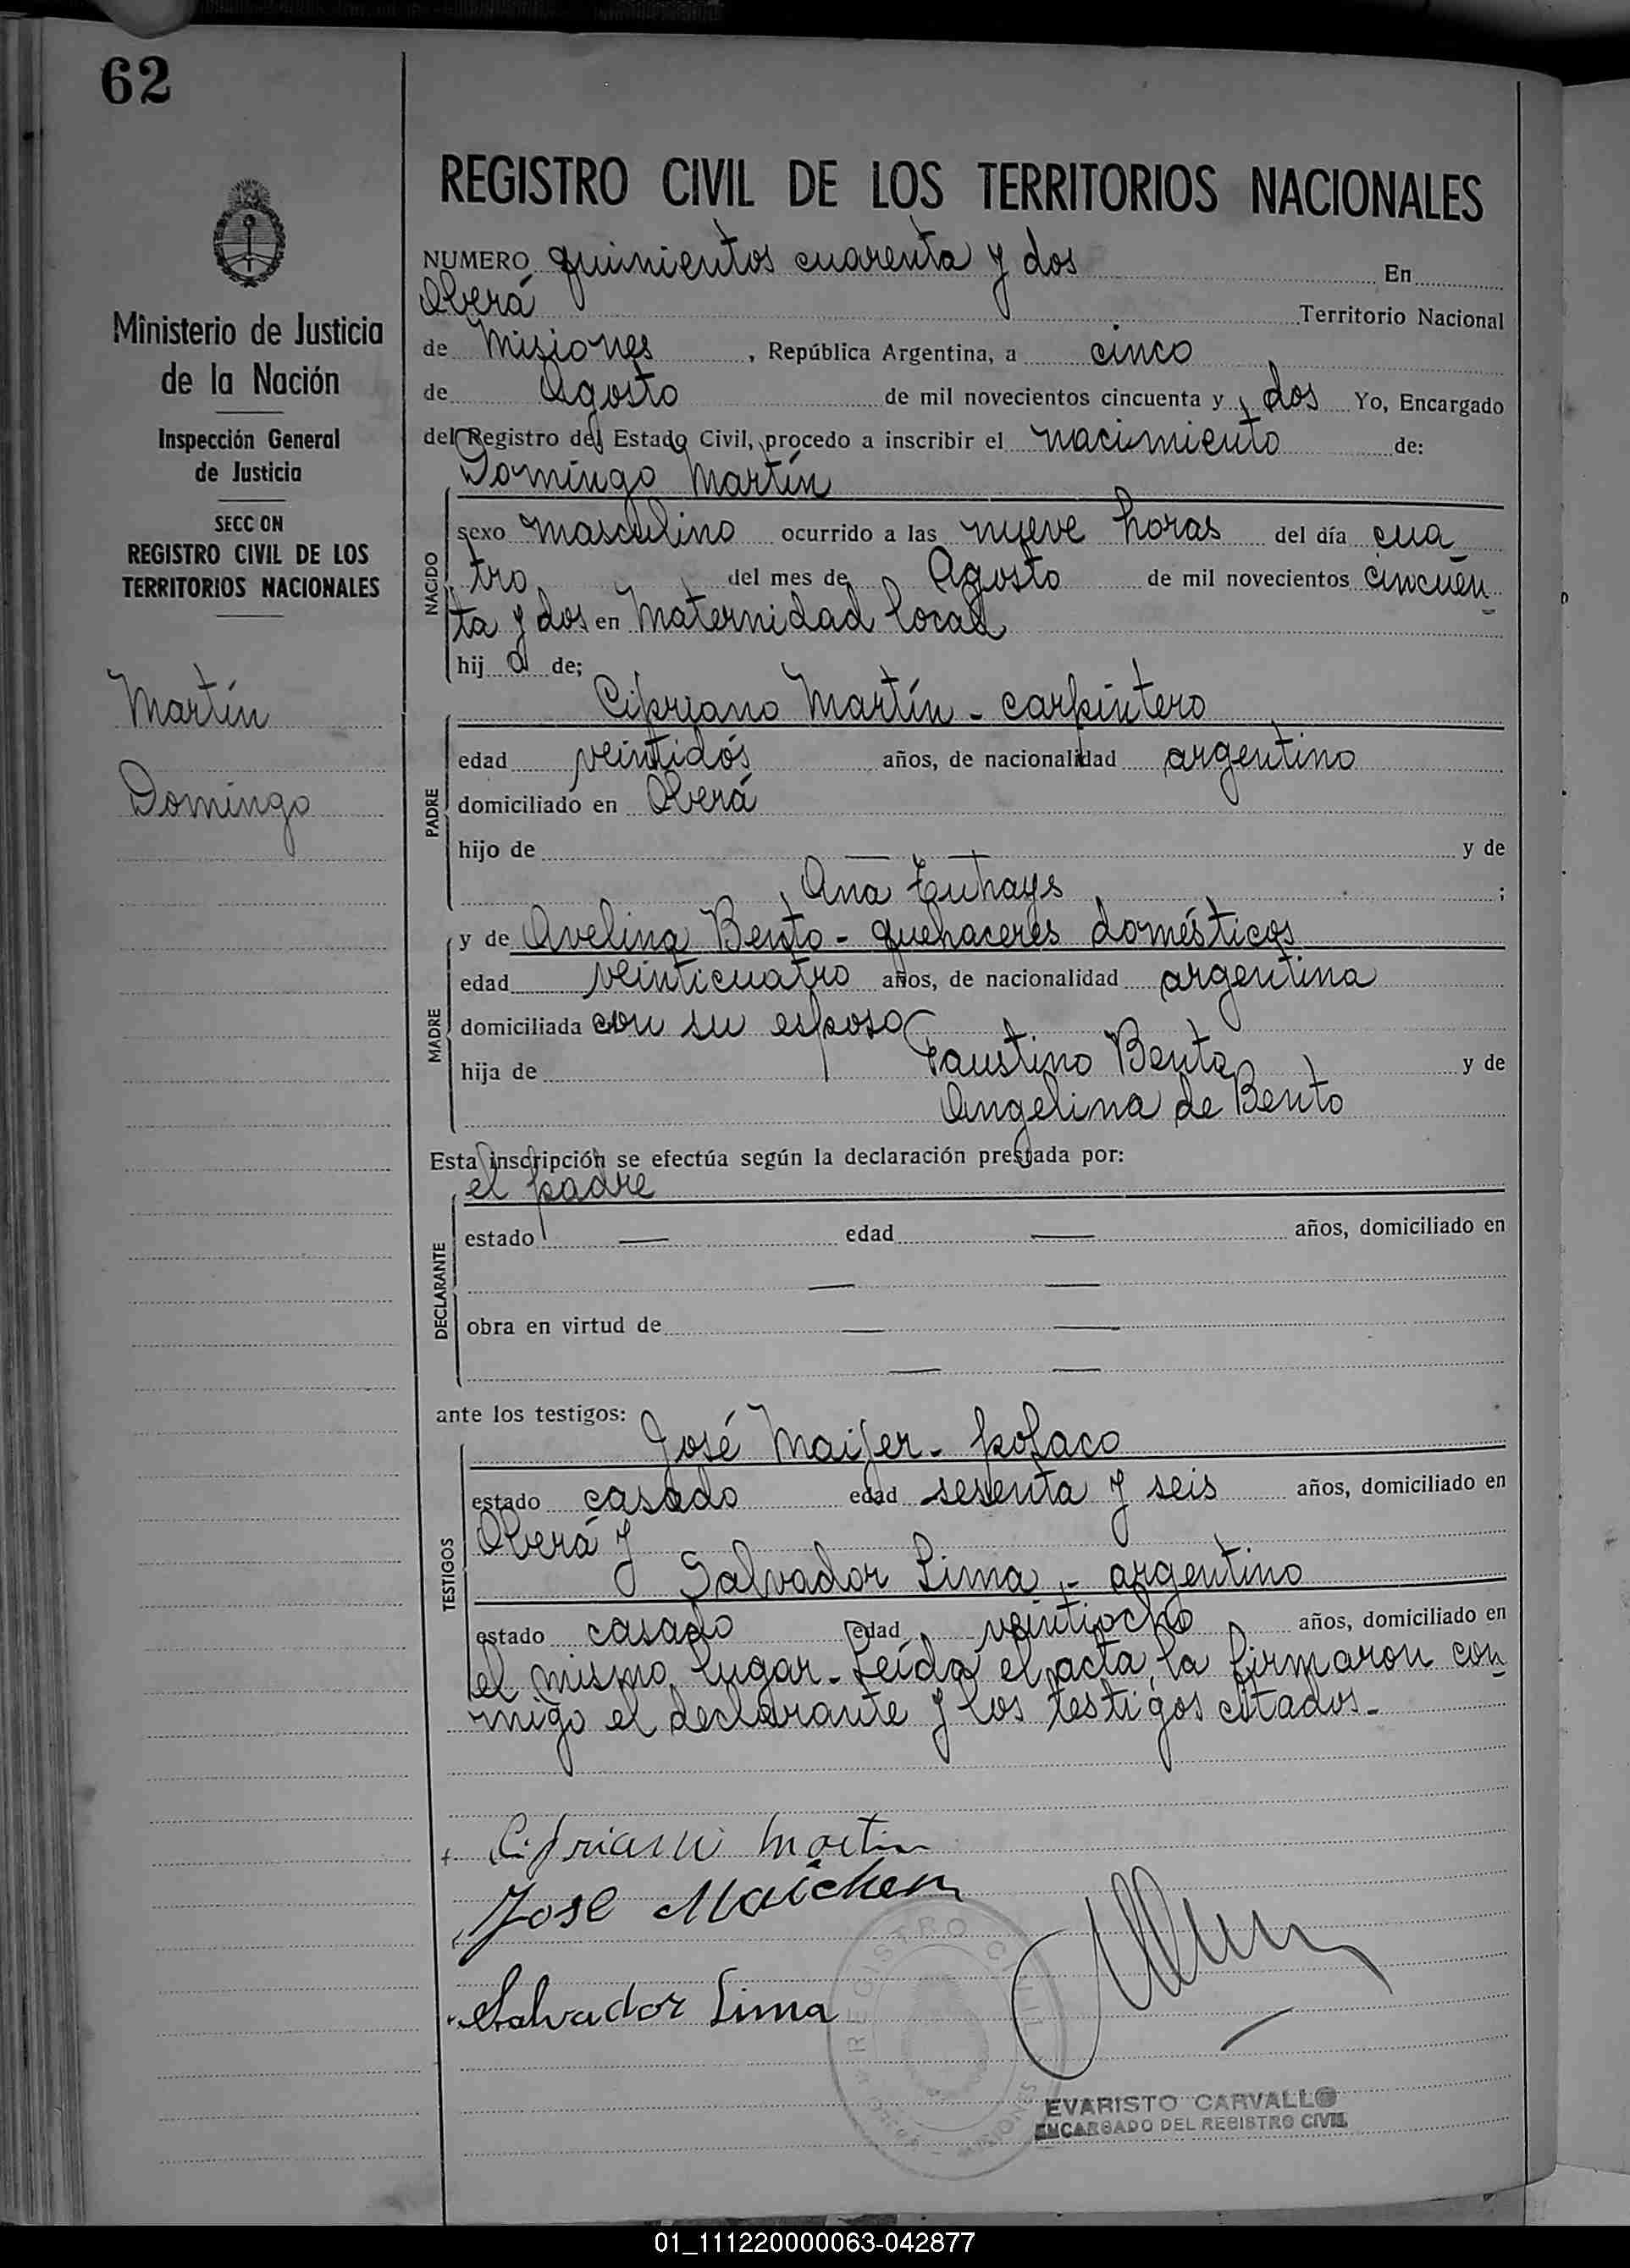 62
Ministerio de Justicia
de la Nación
Inspección General
de Justicia
SECC ON
REGISTRO CIVIL DE LOS
TERRITORIOS NACIONALES
Martín
Domingo
REGISTRO CIVIL DE LOS TERRITORIOS NACIONALES
NUMERO quinientos cuarenta y dos En
Oberá Territorio Nacional
de Misiones, República Argentina, a cinco
de Agosto de mil novecientos cincuenta y dos Yo, Encargado
del Registro del Estado Civil, procedo a inscribir el nacimiento de:
Domingo Martín
NACIDO
sexo masculino ocurrido a las nueve horas del día cua-
tro del mes de Agosto de mil novecientos cincuen-
ta y dos en Maternidad local
hij o de;
Cipriano Martín - carpintero
PADRE
edad veintidós años, de nacionalidad argentino
domiciliado en Oberá
hijo de — — y de
Ana ;
MADRE
y de Avelina Bento - quehaceres domésticos
edad veinticuatro años, de nacionalidad argentina
domiciliada con su esposo
hija de Faustino Bento y de
Angelina de Bento
Esta inscripción se efectúa según la declaración prestada por:
el padre
DECLARANTE
estado — edad — años, domiciliado en
— —
obra en virtud de — —
— —
ante los testigos:
José Maijer - polaco
TESTIGOS
estado casado edad sesenta y seis años, domiciliado en
Oberá y
Salvador Lima - argentino
estado casado edad veintiocho años, domiciliado en
el mismo lugar - Leída el acta, la firmaron con-
migo el declarante y los testigos citados.-
Martin
Jose Maichen
Salvador Lima
REGISTRO CIVIL
MISIONES
EVARISTO CARVALLO
ENCARGADO DEL REGISTRO CIVIL
01_111220000063-042877